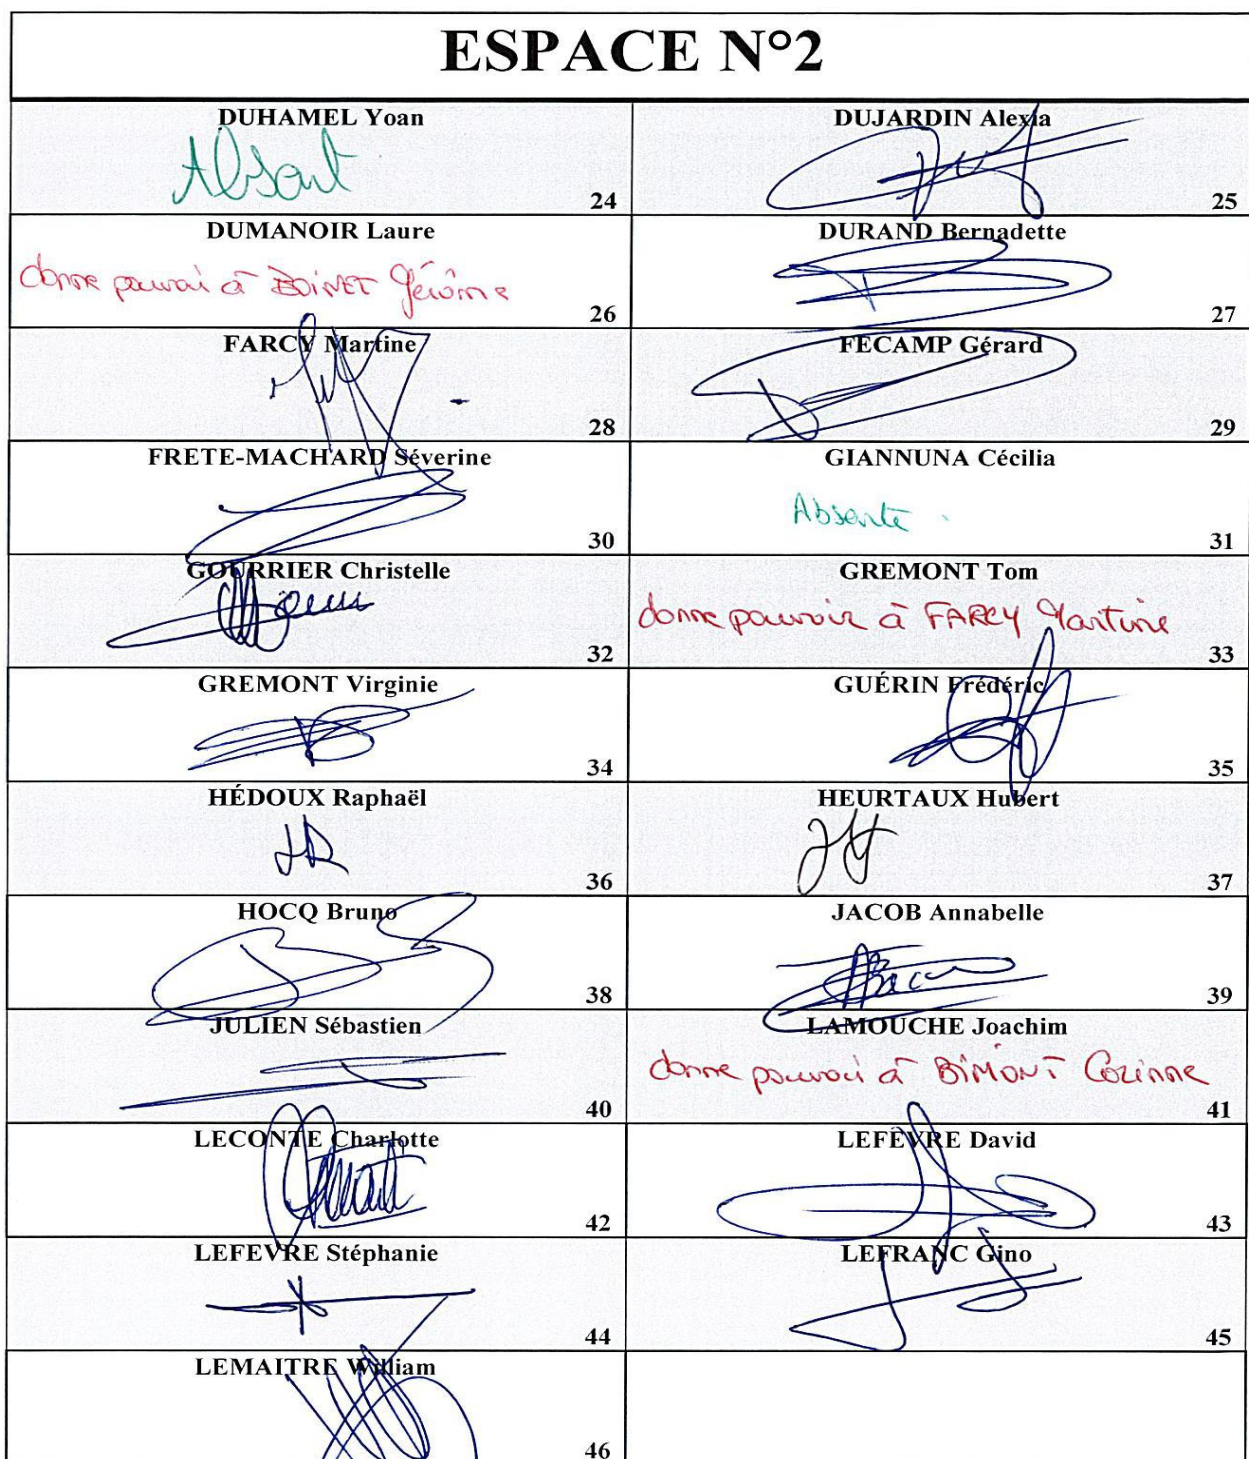 ESPACE N°2
DUHAMEL Yoan
Absent
24
DUJARDIN Alexia
25
DUMANOIR Laure
donne pouvoir à BOINET Jérôme
26
DURAND Bernadette
27
FARCY Martine
28
FECAMP Gérard
29
FRETE-MACHARD Séverine
30
GIANNUNA Cécilia
Absente
31
GOURRIER Christelle
32
GREMONT Tom
donne pouvoir à FARCY Martine
33
GREMONT Virginie
34
GUÉRIN Frédéric
35
HÉDOUX Raphaël
36
HEURTAUX Hubert
37
HOCQ Bruno
38
JACOB Annabelle
39
JULIEN Sébastien
40
LAMOUCHE Joachim
donne pouvoir à BIMONT Corinne
41
LECONTE Charlotte
42
LEFÈVRE David
43
LEFEVRE Stéphanie
44
LEFRANC Gino
45
LEMAITRE William
46